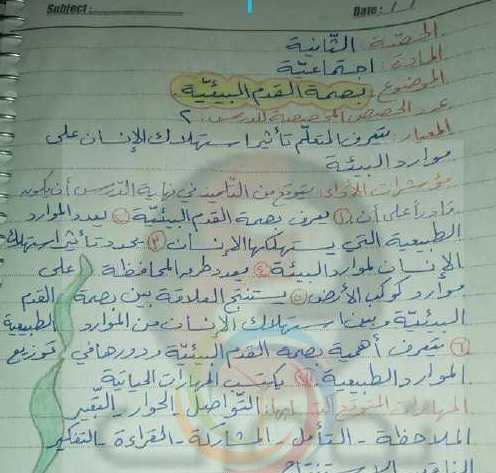 Subject :
Date : / /
الحصّة: الثّانية
المادة: اجتماعيّة
الموضوع: بصمة القدم البيئيّة
عدد الحصص المخصصة للدرس: ٢
المعيار: يتعرف المتعلّم تأثير استهلاك الإنسان على
موارد البيئة
مؤشرات الأداء: يتوقع من التلميذ في نهاية الدرس أن يكون
قادراً على أن: ① يعرف بصمة القدم البيئيّة ② يعدد الموارد
الطبيعية التي يستهلكها الإنسان ③ يحدد تأثير استهلاك
الإنسان لموارد البيئة ④ يعدد طرق المحافظة على
موارد كوكب الأرض ⑤ يستنتج العلاقة بين بصمة القدم
البيئيّة وبين استهلاك الإنسان من الموارد الطبيعية
⑥ يتعرف أهمية بصمة القدم البيئيّة ودورها في توزيع
الموارد الطبيعية ⑦ يكتسب المهارات الحياتية
المهارات التواصل - الحوار - التعبير
الملاحظة - التأمل - المشاركة - القراءة - التفكير
الناقد - الاستنتاج